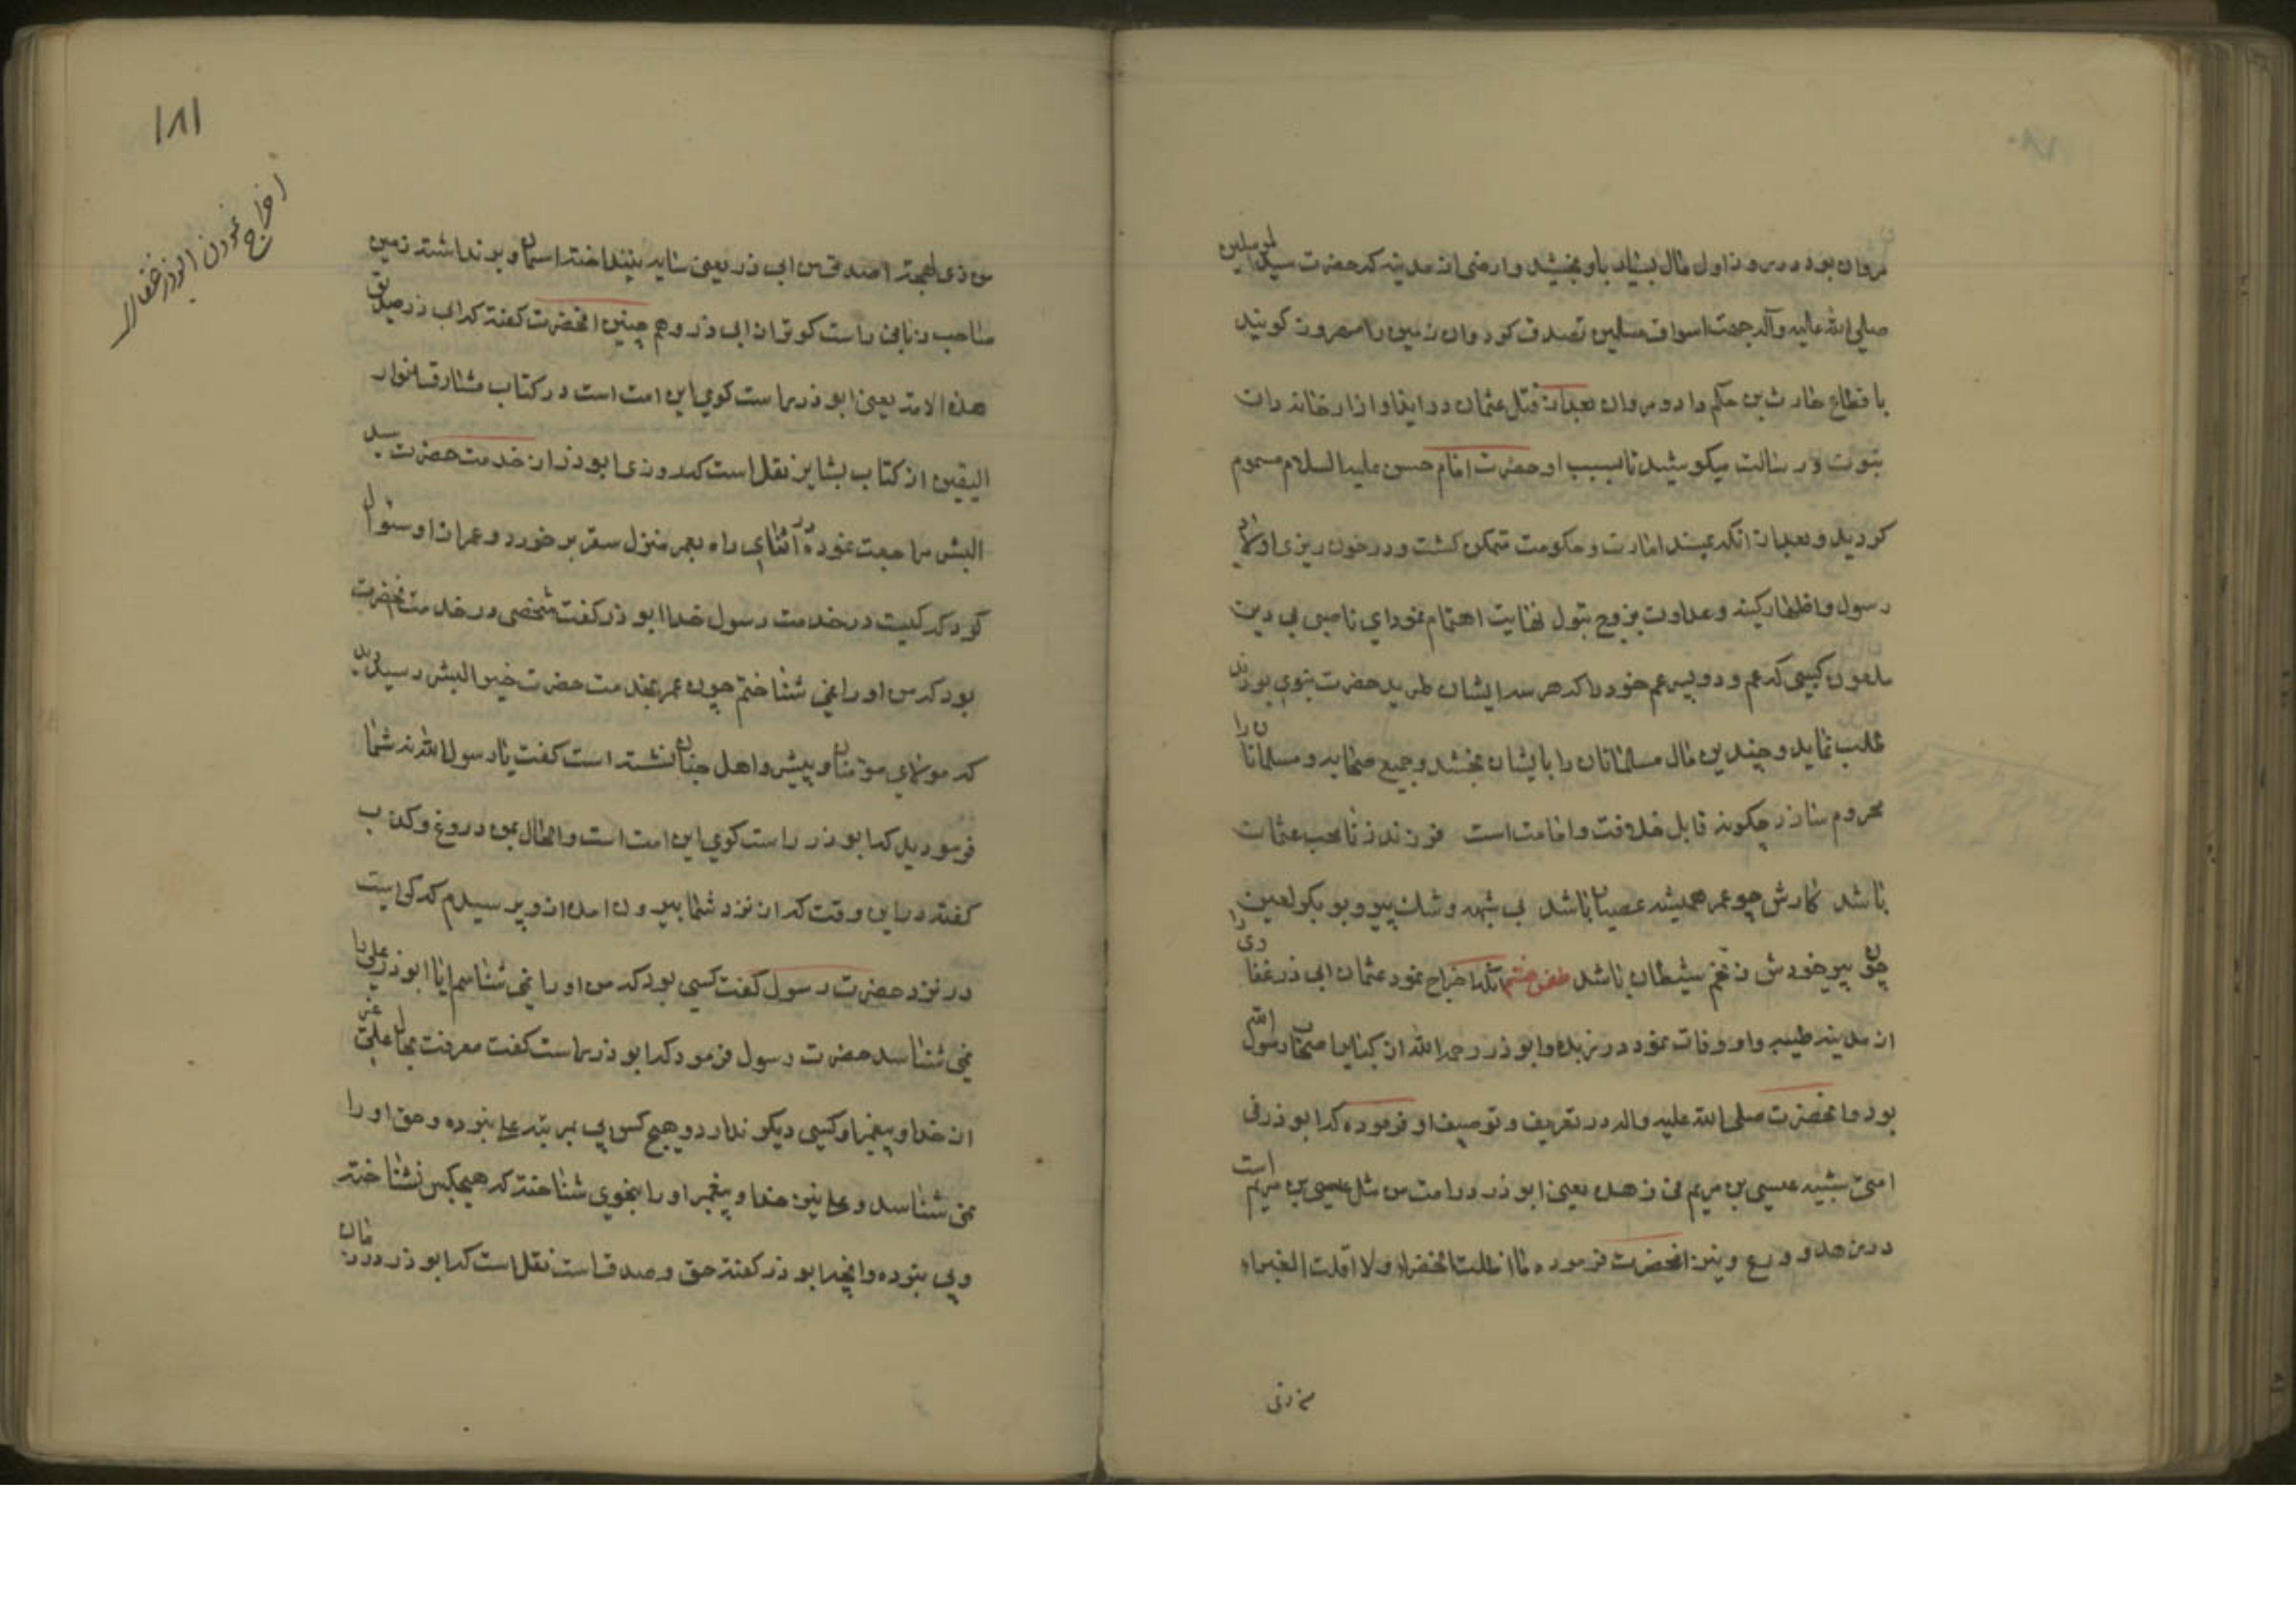 مروان بود در روز اول مال بسیار باو بخشید و ارضی از مدینه که حضرت سید المرسلین
صلی الله علیه وآله جهت اسواق مسلمین تصدق کرد وان زمین را مهرون کویند
باقطاع حارث بن حکم داد و مروان بعد از قتل عثمان در ایذا و ازار خاندان
نبوت و رسالت میکوشید تا بسبب او حضرت امام حسن علیه السلام مسموم
کردید و بعد از انکه بمسند امارت و حکومت متمکن کشت و در خون ریزی اولاد
رسول و اظهار کینه و عداوت بزوج بتول نهایت اهتمام نمود ای ناصبی بی دین
ملعون کسی که عم و دو پسر عم خود را که هر سه ایشان طرید حضرت نبوی بودند
طلب نماید و چندین مال مسلمانان را بایشان بخشد و جمیع صحابه و مسلمانان را
محروم سازد چکونه قابل خلافت و امامت است فرزند زنا محب عثمان
باشد کارش چو عمر همیشه عصیان باشد بی شبهه و شک پیرو بوبکر لعین
چون پیر خودش ز تخم شیطان باشد طعن هشتم آنکه اخراج نمود عثمان ابی ذر غفاری را
از مدینه طیبه و او وفات نمود در ربذه و ابو ذر رحمه الله از کبار اصحاب رسول الله
بود و انحضرت صلی الله علیه واله در تعریف و توصیف او فرموده که ابو ذر فی
امتی شبیه عیسی بن مریم فی زهده یعنی ابو ذر در امت من مثل عیسی بن مریم است
در زهد و ورع و نیز انحضرت فرموده ما اظلت الخضراء ولا اقلت الغبراء
من ذی
۱۸۱
اخراج نمودن ابوذر غفار
من ذی لهجة اصدق من ابی ذر یعنی سایه نینداخته اسمان و بر نداشته زمین
صاحب زبانی راست کوتر از ابی ذر و هم چنین انحضرت کفته که ابی ذر صدیق
هذه الامة یعنی ابو ذر راست کوی این امت است در کتاب مشارق انوار
الیقین از کتاب بشایر نقل است که روزی ابو ذر از خدمت حضرت سید
البشر مراجعت نموده در اثنای راه بعمر منزل سقر بر خورد و عمر از او سئوال
کرد که کیست در خدمت رسول خدا ابو ذر کفت شخصی در خدمت انحضرت
بود که من او را نمی شناختم چون عمر بخدمت حضرت خیر البشر رسید دید
که مولای مؤمنان و پیشرو اهل جنان نشسته است کفت یا رسول الله نه شما
فرمودید که ابو ذر راست کوی این امت است و الحال بمن دروغ و کذب
کفته در این وقت که از نزد شما بیرون امد از وپرسیدم که کیست
در نزد حضرت رسول کفت کسی بود که من او را نمی شناسم ایا ابو ذر علی را
نمی شناسد حضرت رسول فرمود که ابو ذر راست کفت معرفت بحال علی غیر
از خدا و پیغمبر او کسی دیکر ندارد و هیچ کس پی بمرتبه علی نبرده و حق او را
نمی شناسد و علی نیز خدا و پیغمبر او را بنحوی شناخته که هیچکس نشناخته
و پی نبرده وانچه ابو ذر کفته حق و صدق است نقل است که ابو ذر در زمان